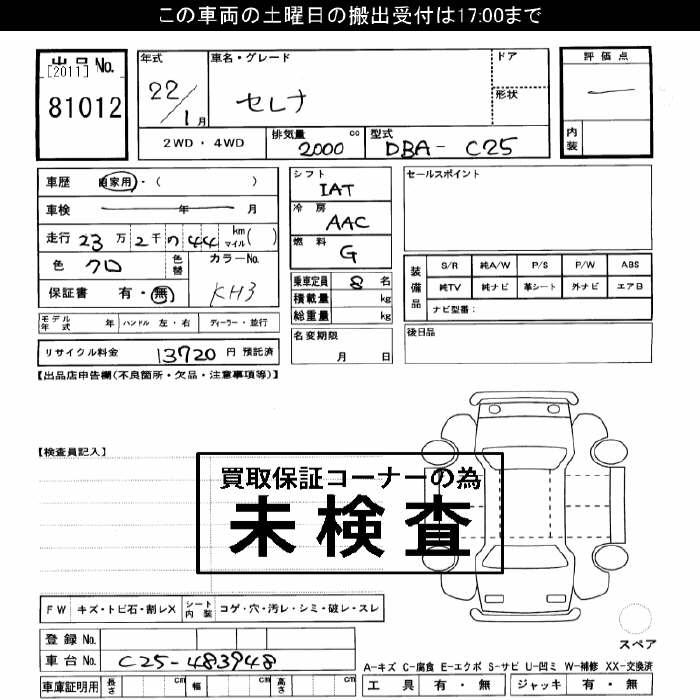 この車両の土曜日の搬出受付は17:00まで
出品No. [2011] 81012
年式 22/1月
車名・グレード セレナ
ドア
形状
評価点 —
内装
2WD・4WD
排気量 2000 cc
型式 DBA- C25
車歴 自家用・( )
車検 年 月
走行 23万2千044 km マイル( )
色 クロ 色替
カラーNo. KH3
保証書 有・無
シフト IAT
冷房 AAC
燃料 G
乗車定員 8名
積載量 kg
総重量 kg
名変期限 月 日
セールスポイント
装備品
S/R 純A/W P/S P/W ABS
純TV 純ナビ 革シート 外ナビ エアB
ナビ型番:
後日品
モデル年式 年 ハンドル 左・右 ディーラー・並行
リサイクル料金 13720 円 預託済
【出品店申告欄(不良箇所・欠品・注意事項等)】
【検査員記入】
買取保証コーナーの為
未検査
FW キズ・トビ石・割レX シート内装 コゲ・穴・汚レ・シミ・破レ・スレ
スペア
登録No.
車台No. C25-483948
A-キズ C-腐食 E-エクボ S-サビ U-凹ミ W-補修 XX-交換済
車庫証明用 長さ cm 幅 cm 高さ cm
工具 有・無 ジャッキ 有・無